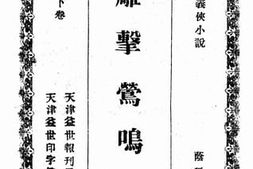 義俠小說
蔭
雕擊鶯鳴
下卷
天津益世報刊
天津益世印字